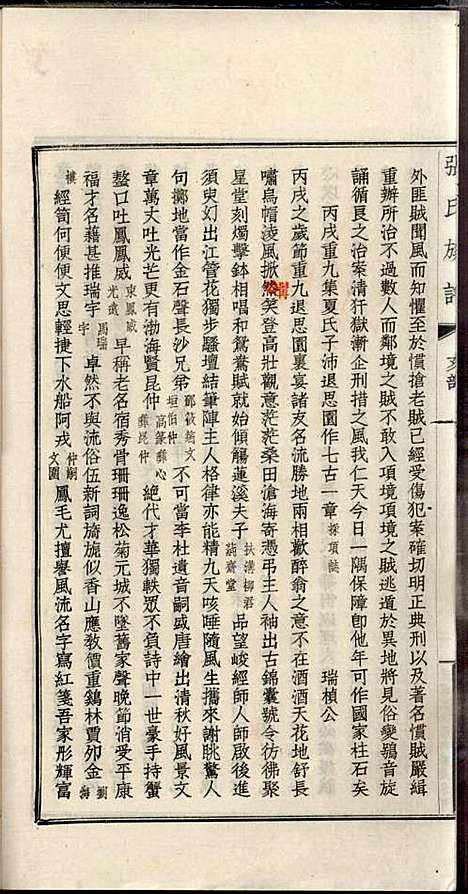 張氏族譜
文部
外匪賊聞風而知懼至於慣搶老賊已經受傷犯案確切明正典刑以及著名慣賊嚴緝
重辦所治不過數人而鄰境之賊不敢入項境項境之賊逃遁於異地將見俗變鴞音旋
誦循良之治案清犴獄漸企刑措之風我仁天今日一隅保障卽他年可作國家柱石矣
丙戌重九集夏氏子沛退思園作七古一章 採項誌 瑞楨公
丙戌之歲節重九退思園裏宴諸友名流勝地兩相歡醉翁之意不在酒酒天花地舒長
嘯烏帽淩風掀然笑登高壯觀意茫茫桑田滄海寄憑弔主人袖出古錦囊號令仿彿聚
星堂刻燭擊鉢相唱和鴛鴦賦就始傾觴蓮溪夫子 扶溝柳君 蒓齋堂 品望峻經師人師啟後進
須臾幻出江管花獨步騷壇結筆陣主人格律亦能精九天咳唾隨風生攜來謝眺驚人
句擲地當作金石聲長沙兄弟 鄧筱鶴文 垣伯仲 不可當李杜遺音嗣盛唐繪出清秋好風景文
章萬丈吐光芒更有渤海賢昆仲 高篆彝心 彝昆仲 絕代才華獨軼眾不負詩中一世豪手持蟹
螯口吐鳳鳳威 東鳳威 光遠 早稱老名宿秀骨珊珊逸松菊元城不墜舊家聲晚節消受平康
福才名藉甚推瑞宇 馬瑞 宇 卓然不與流俗伍新詞旖旎似香山應教價重鷄林賈夘金 劉 海
樓 經笥何便便文思輕捷下水船阿戎 仲嗣 文圃 鳳毛尤擅譽風流名字寫紅箋吾家彤輝富